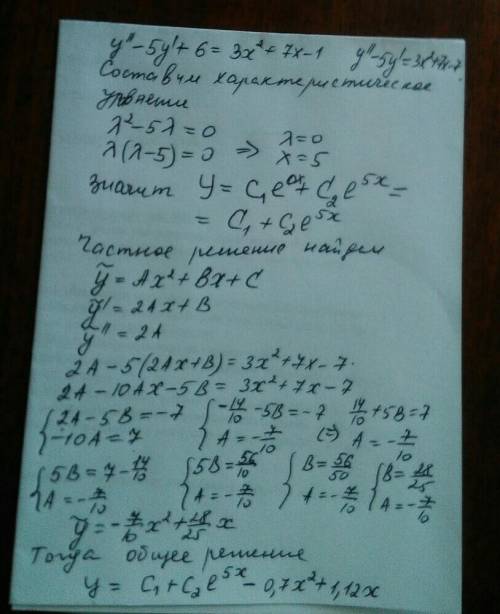 y'' - 5y' + 6 = 3x² + 7x - 1 y'' - 5y' = 3x² + 7x - 7
Составим характеристическое
уравнение
λ² - 5λ = 0
λ(λ - 5) = 0 ⇒ λ = 0
x = 5
Значит Y = C₁e^{0x} + C₂e^{5x} =
= C₁ + C₂e^{5x}
Частное решение найдем
ỹ = Ax² + Bx + C
ỹ' = 2Ax + B
ỹ'' = 2A
2A - 5(2Ax + B) = 3x² + 7x - 7.
2A - 10Ax - 5B = 3x² + 7x - 7
{2A - 5B = -7 {-14/10 - 5B = -7 14/10 + 5B = 7
{-10A = 7 {A = -7/10 (=) A = -7/10
{5B = 7 - 14/10 {5B = 56/10 {B = 56/50 {B = 28/25
{A = -7/10 {A = -7/10 {A = -7/10 {A = -7/10
ỹ = -7/10 x² + 28/25 x
Тогда общее решение
y = C₁ + C₂e^{5x} - 0,7x² + 1,12x